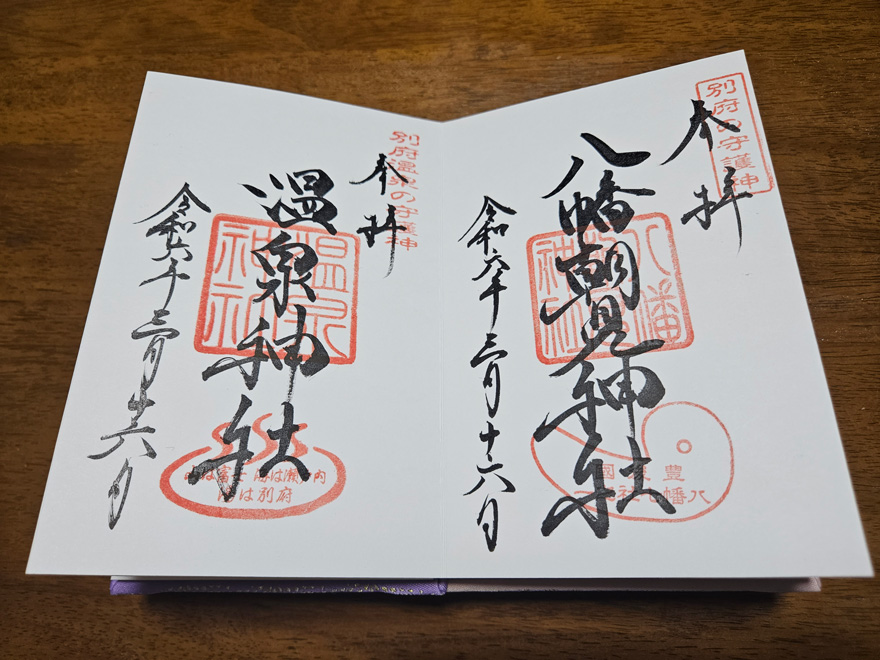 別府の守護神
奉拝
八幡朝見神社
八幡
神社
豊
國
八幡
令和六年三月十六日
別府温泉の守護神
奉拝
温泉神社
温泉
神社
山は富士 海は瀬戸内
湯は別府
令和六年三月十六日